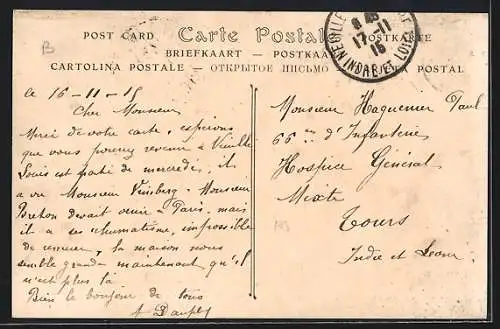 B
POST CARD
Carte Postale
POSTKARTE
BRIEFKAART — POSTKAA
CARTOLINA POSTALE — ОТКРЫТОЕ ПИСЬМО
POSTAL
NEUILLE
8 45
17-11
15
INDRE ET LOIRE
Ce 16-11-15
Cher Monsieur
Merci de votre carte, espérons
que vous pourrez revenir à Neuillé
Louis est parti de mercredi, il
a vu Monsieur Vinsberg. Monsieur
Brehon devait venir à Paris, mais
il a ses rhumatisme, impossible
de remuer, la maison nous
semble grande maintenant qu'il
n'est plus là
Bien le bonjour de tous
Monsieur Haguener Paul
66 me d'Infanterie
Hospice Général
Mixte
Tours
Indre et Loire